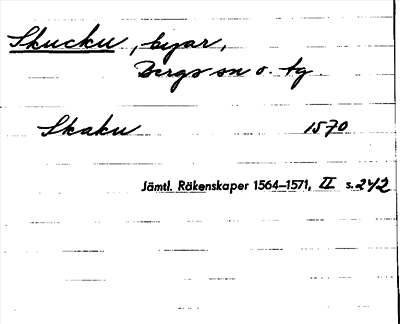 Skucku, byar,
Bergs sn o. tg.
Skaku 1570
Jämtl. Räkenskaper 1564–1571, II s. 242